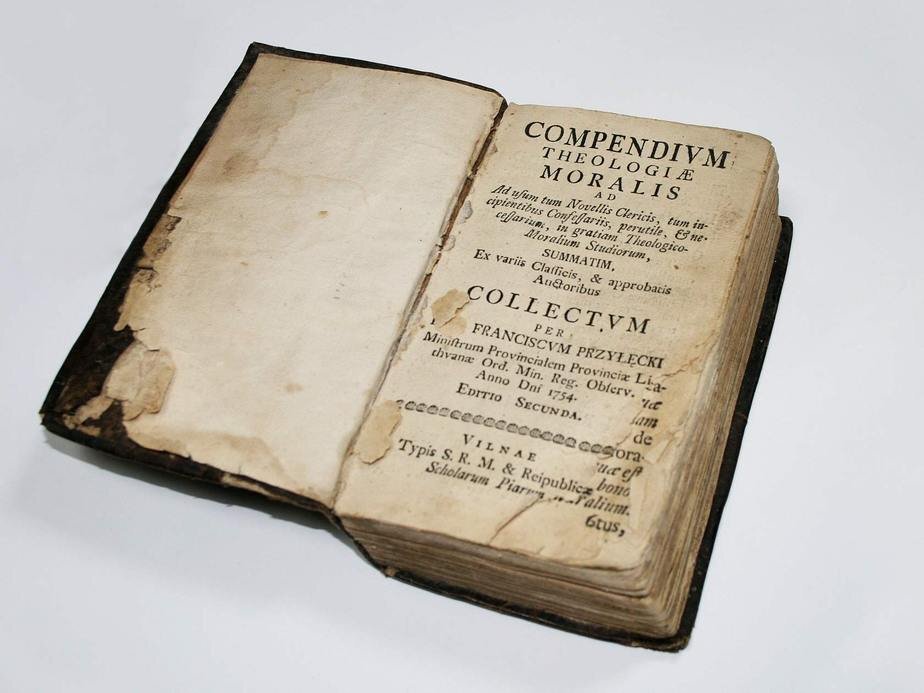 COMPENDIVM
THEOLOGIÆ
MORALIS
AD
Ad uſum tum Novellis Clericis, tum in-
cipientibus Confeſſariis, perutile, & ne-
ceſſarium, in gratiam Theologico-
Moralium Studiorum,
SUMMATIM,
Ex variis Claſſicis, & approbatis
Auctoribus
COLLECTVM
PER
FRANCISCVM PRZYŁĘCKI
Miniſtrum Provincialem Provinciæ Li-
thvanæ Ord. Min. Reg. Obſerv.
Anno Dni 1754.
EDITIO SECUNDA.
de
ora-
VILNAE
uæ eſt
Typis S. R. M. & Reipublicæ bono
Scholarum Piarum alium.
ctus,